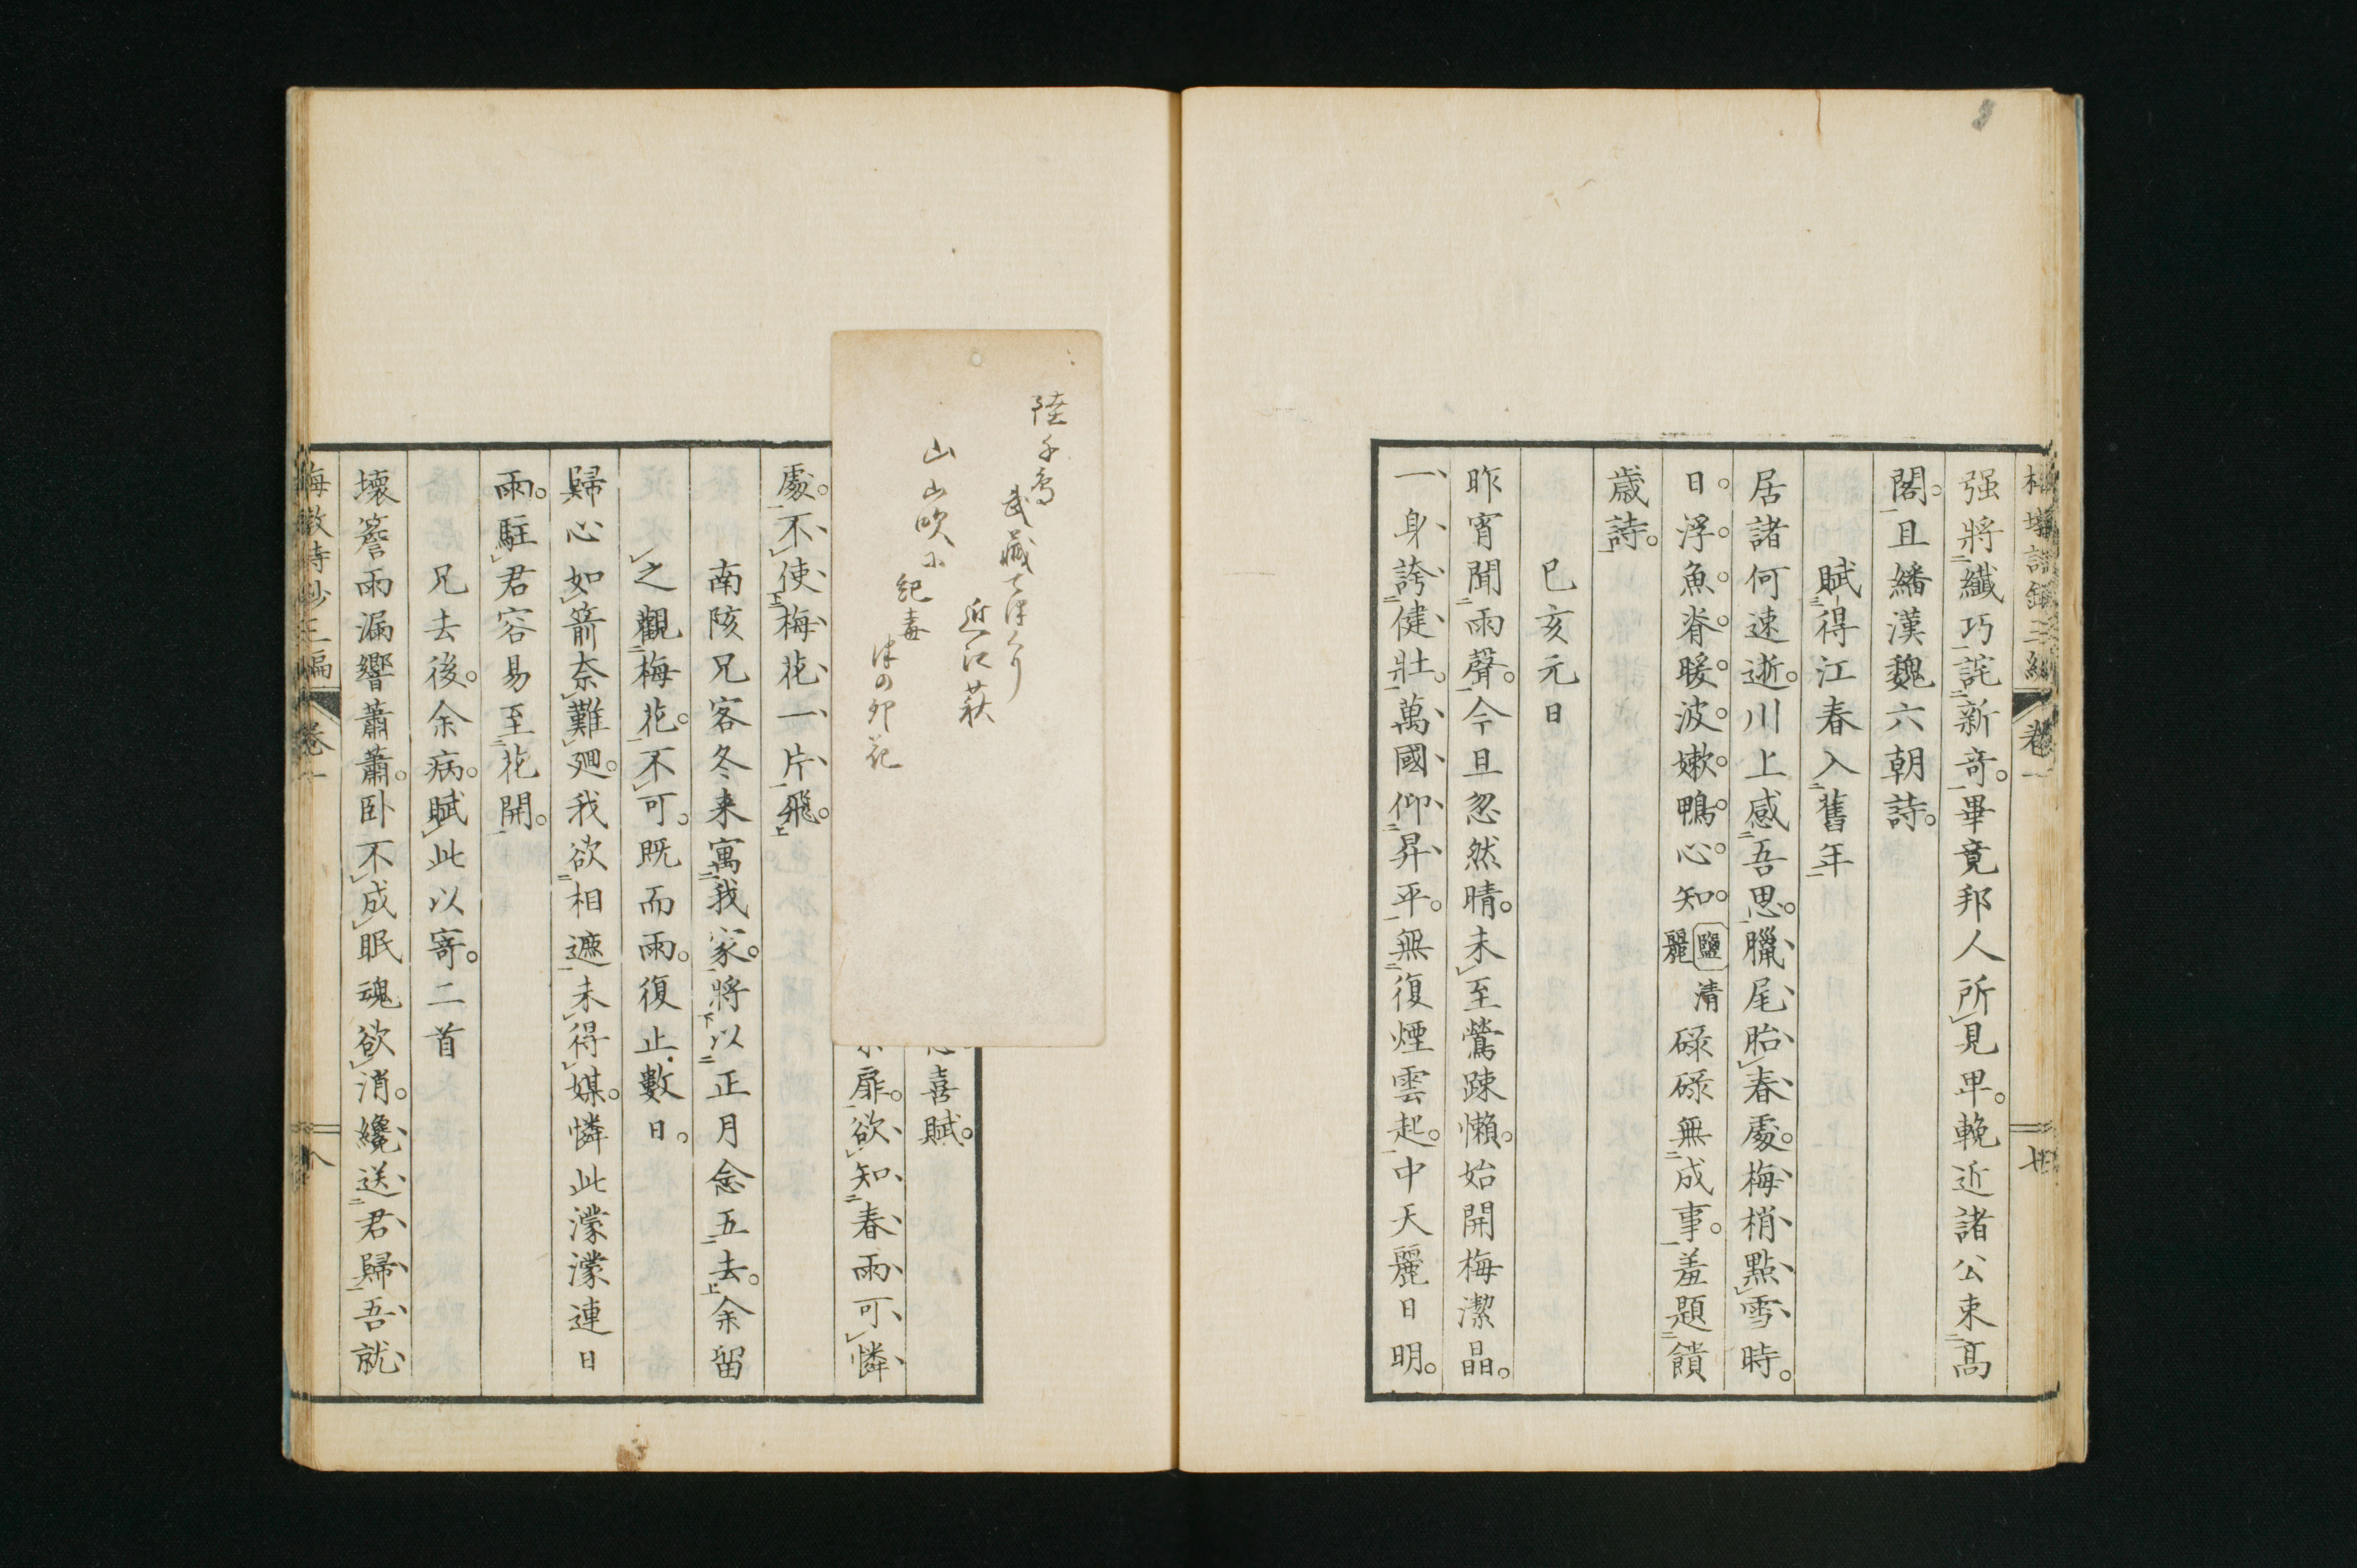 强將纖巧詫新竒。畢竟邦人所見卑。輓近諸公束髙
閣。且繙漢魏六朝詩。
賦得江春入舊年
居諸何速逝。川上感吾思。臘尾胎春處。梅梢點雪時。
日。浮。魚。脊。暖。波。嫩。鴨。心。知。鹽清麗碌碌無成事。羞題饋
歳詩。
已亥元日
昨宵聞雨聲。今旦忽然晴。未至鶯踈懶。始開梅潔晶。
一身誇健壯。萬國仰昇平。無復煙雲起。中天麗日明。
陸千鳥
武藏
近江萩
山山吹
紀毒
津の卯花
喜賦。
扉。欲知春雨可憐
處。不使梅花一片飛。
南陔兄客冬来寓我家。將以正月念五去。余留
之觀梅花。不可。既而雨。復止數日。
歸心如箭奈難廻。我欲相遮未得媒。憐此濛濛連日
雨。駐君容易至花開。
兄去後。余病。賦此以寄。二首
壊簷雨漏響蕭蕭。卧不成眠魂欲消。纔送君歸吾就
梅墩詩鈔三編 卷一